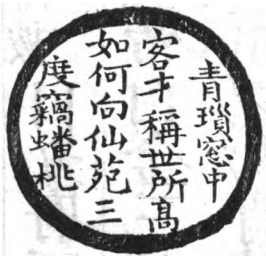 青瑣窓中
客才稱世所髙
如何向仙苑三
度竊蟠桃